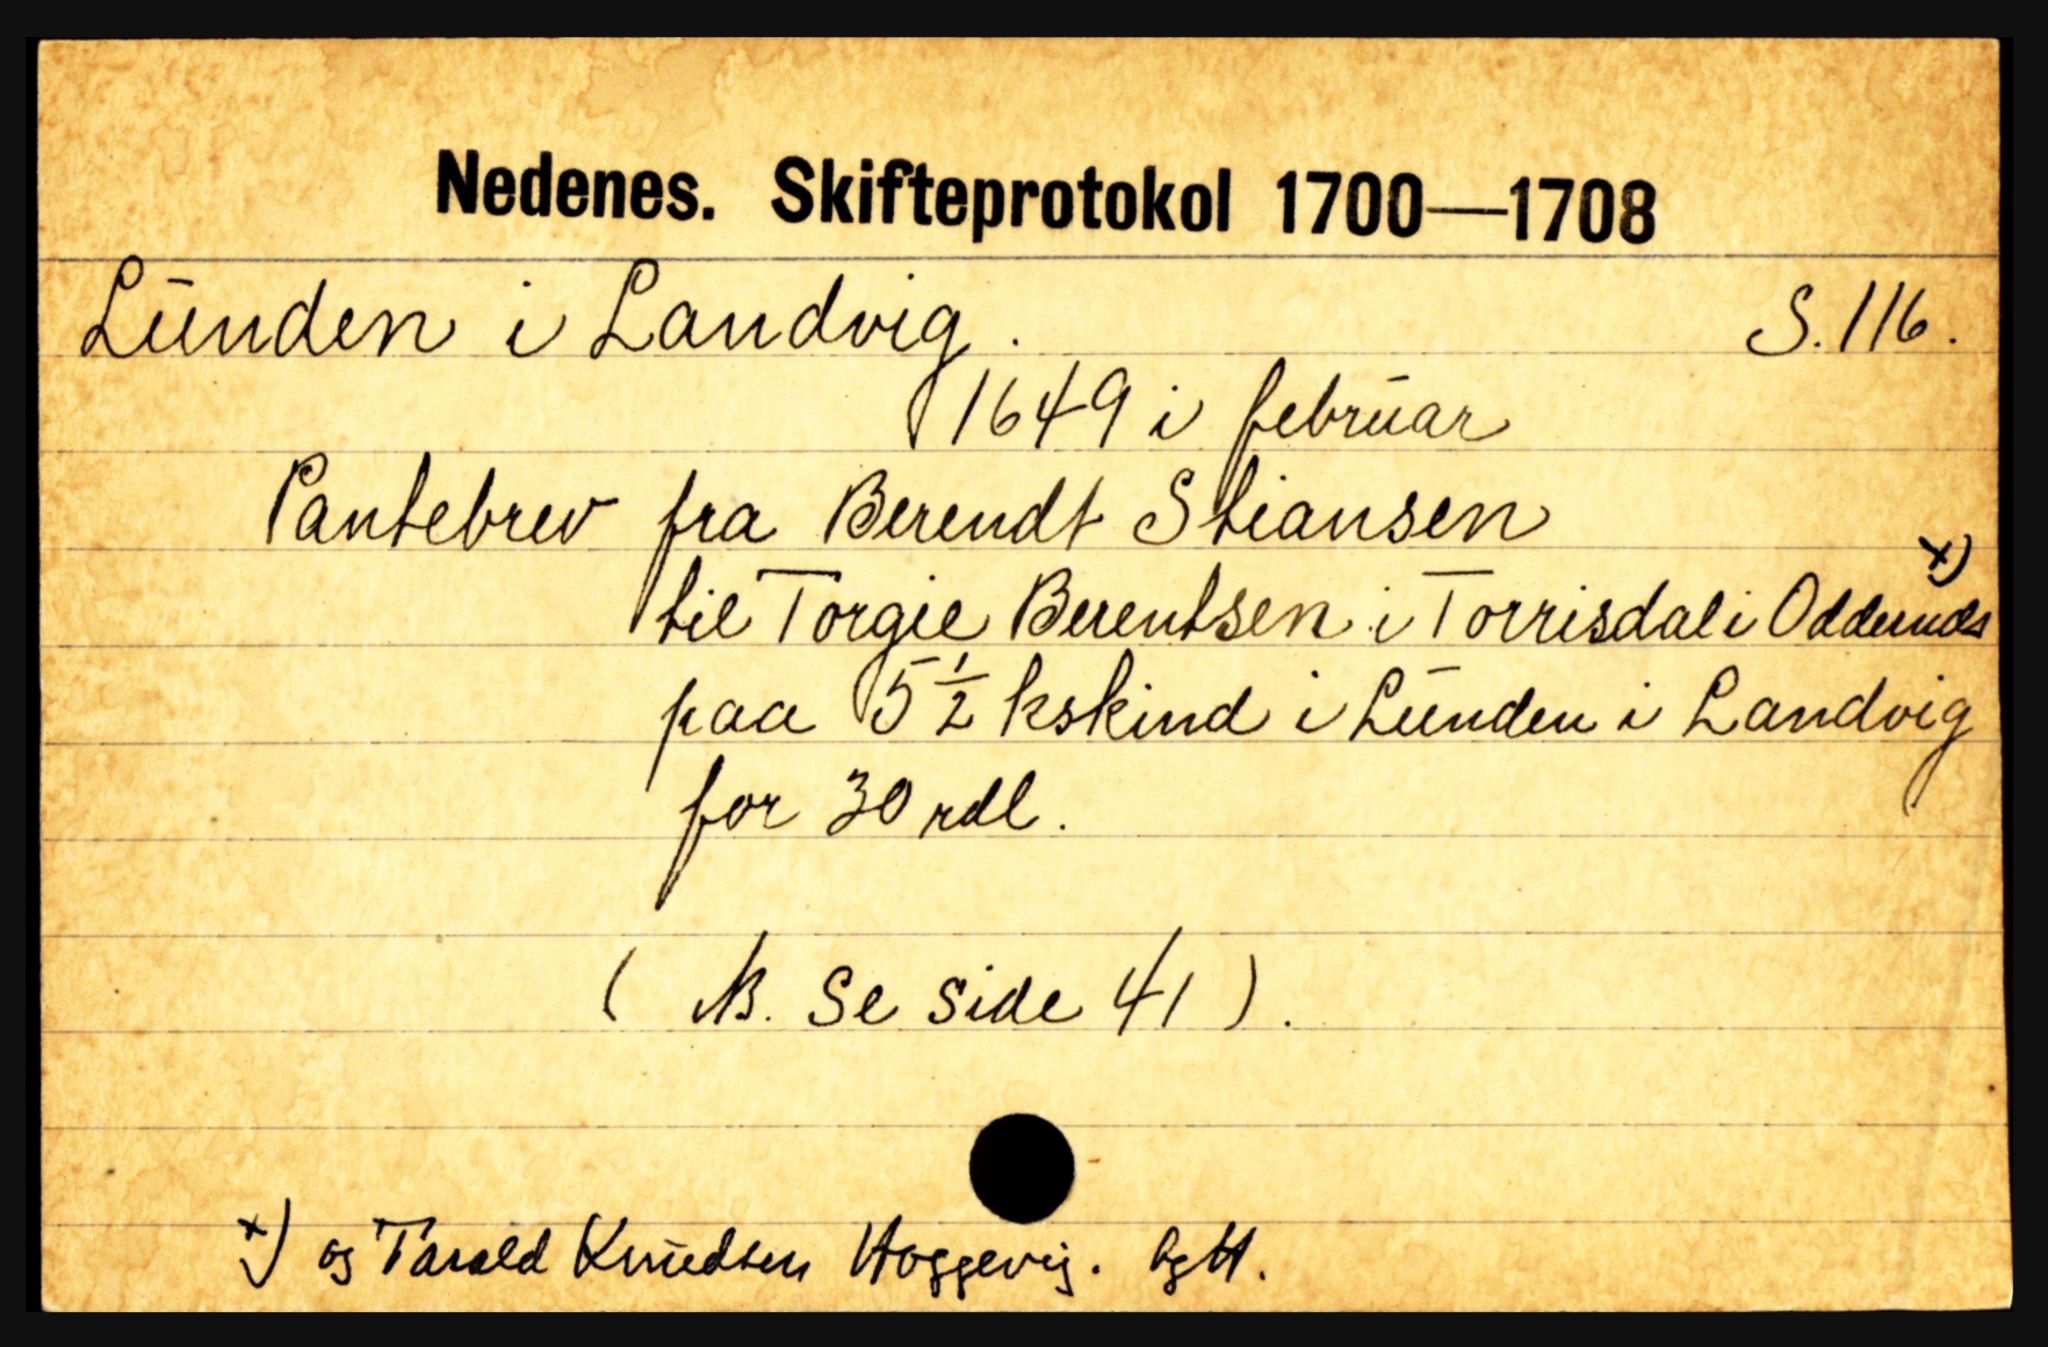 Nedenes. Skifteprotokol 1700—1708
Lunden i Landvig. S. 116.
1649 i februar
Pantebrev fra Berendt Stiansen
til Torgie Berentsen i Torrisdal i Oddernds x)
paa 5 1/2 kskind i Lunden i Landvig
for 30 rdl.
( NB. Se side 41 ).
x) og Tarald Knudsen Hoggevig.